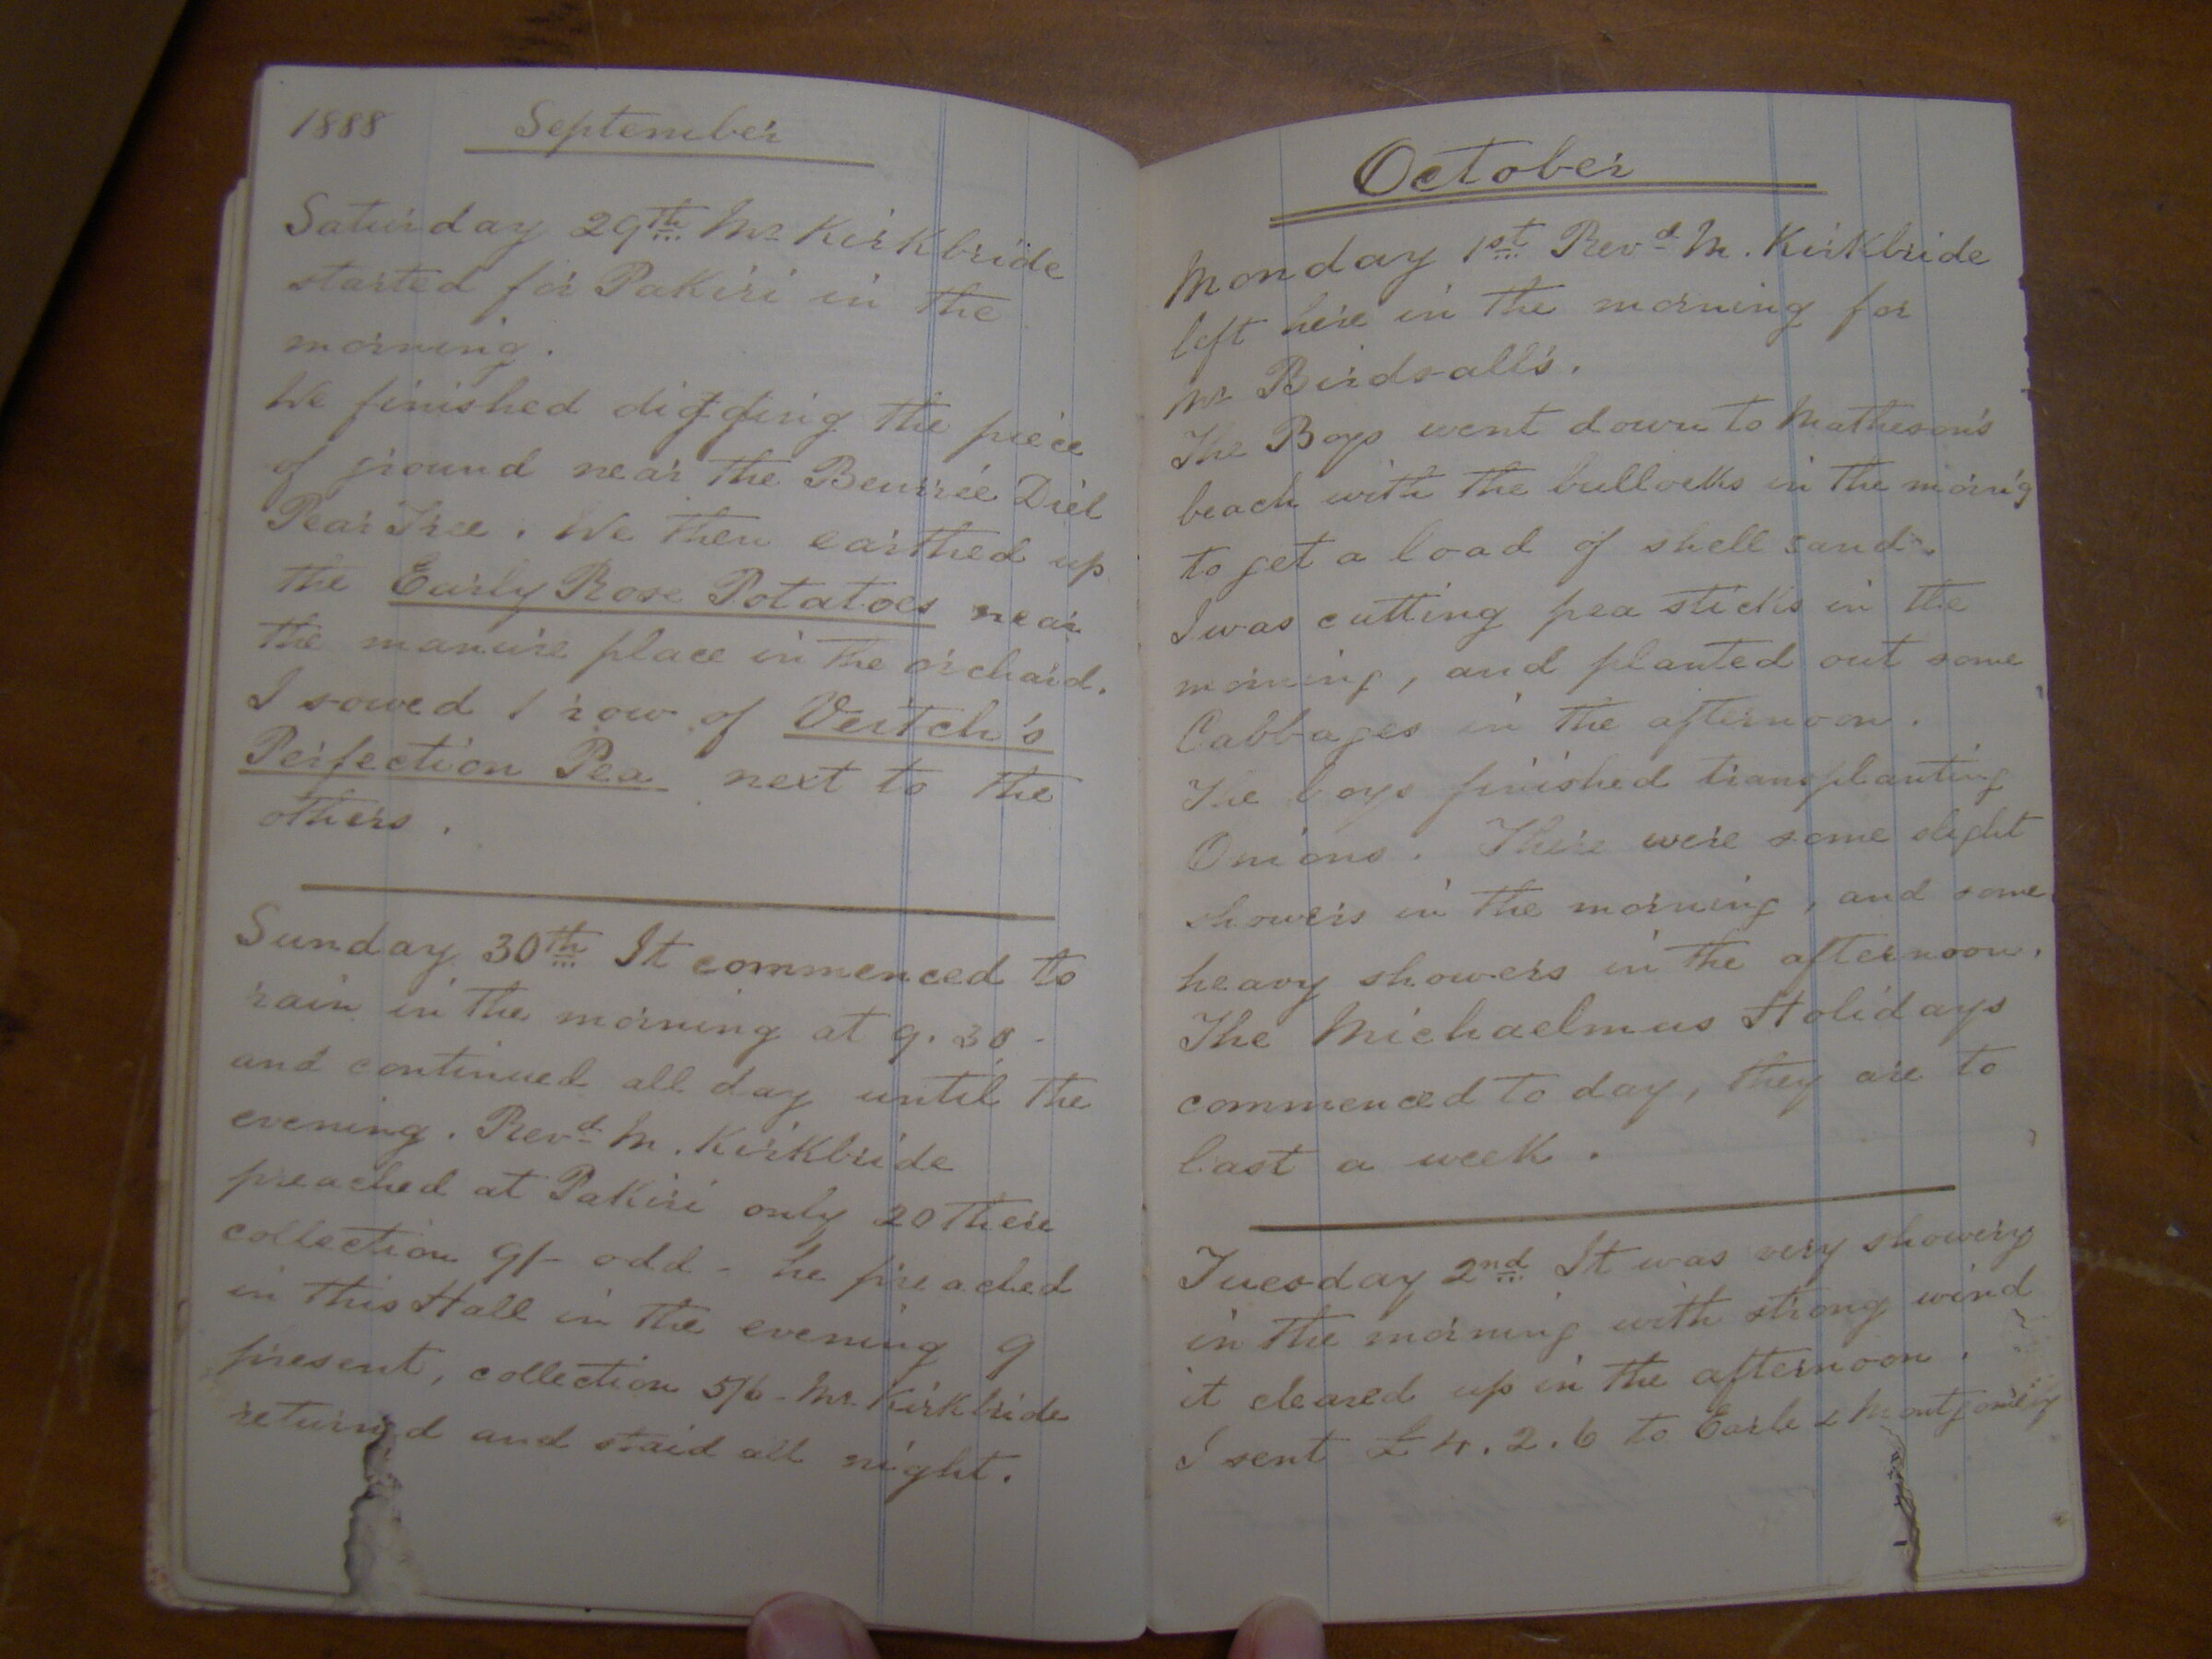 1888 September
Saturday 29th Mr Kirkbride
started for Pakiri in the
morning.
We finished digging the piece
of ground near the Beurrée Diel
Pear Tree. We then earthed up
the Early Rose Potatoes near
the manure place in the orchard.
I sowed 1 row of Veitch's
Perfection Pea next to the
others.
Sunday 30th It commenced to
rain in the morning at 9.30 -
and continued all day until the
evening. Revd M. Kirkbride
preached at Pakiri only 20 there
collection 9/- odd - he preached
in this Hall in the evening 9
present, collection 5/6 - Mr Kirkbride
returned and staid all night.
October
Monday 1st Revd M. Kirkbride
left here in the morning for
Mr Birdsall's.
The Boys went down to Matheson's
beach with the bullocks in the morn'g
to get a load of shell sand.
I was cutting pea sticks in the
morning, and planted out some
Cabbages in the afternoon.
The boys finished transplanting
Onions. There were some slight
showers in the morning, and some
heavy showers in the afternoon.
The Michaelmas Holidays
commenced to day, they are to
last a week.
Tuesday 2nd It was very showery
in the morning with strong wind
it cleared up in the afternoon.
I sent £4.2.6 to Earle & Montgomery